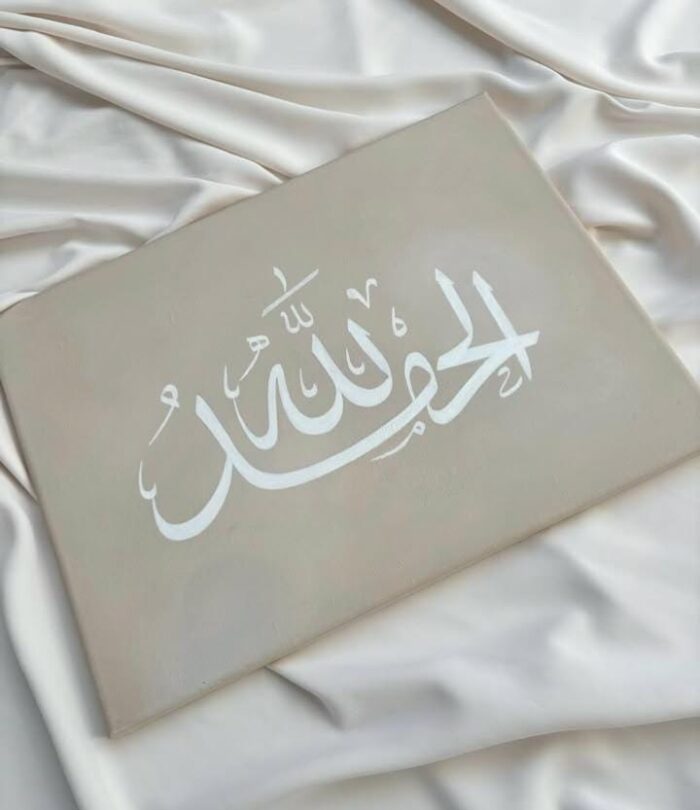 الحمدُ للّٰه